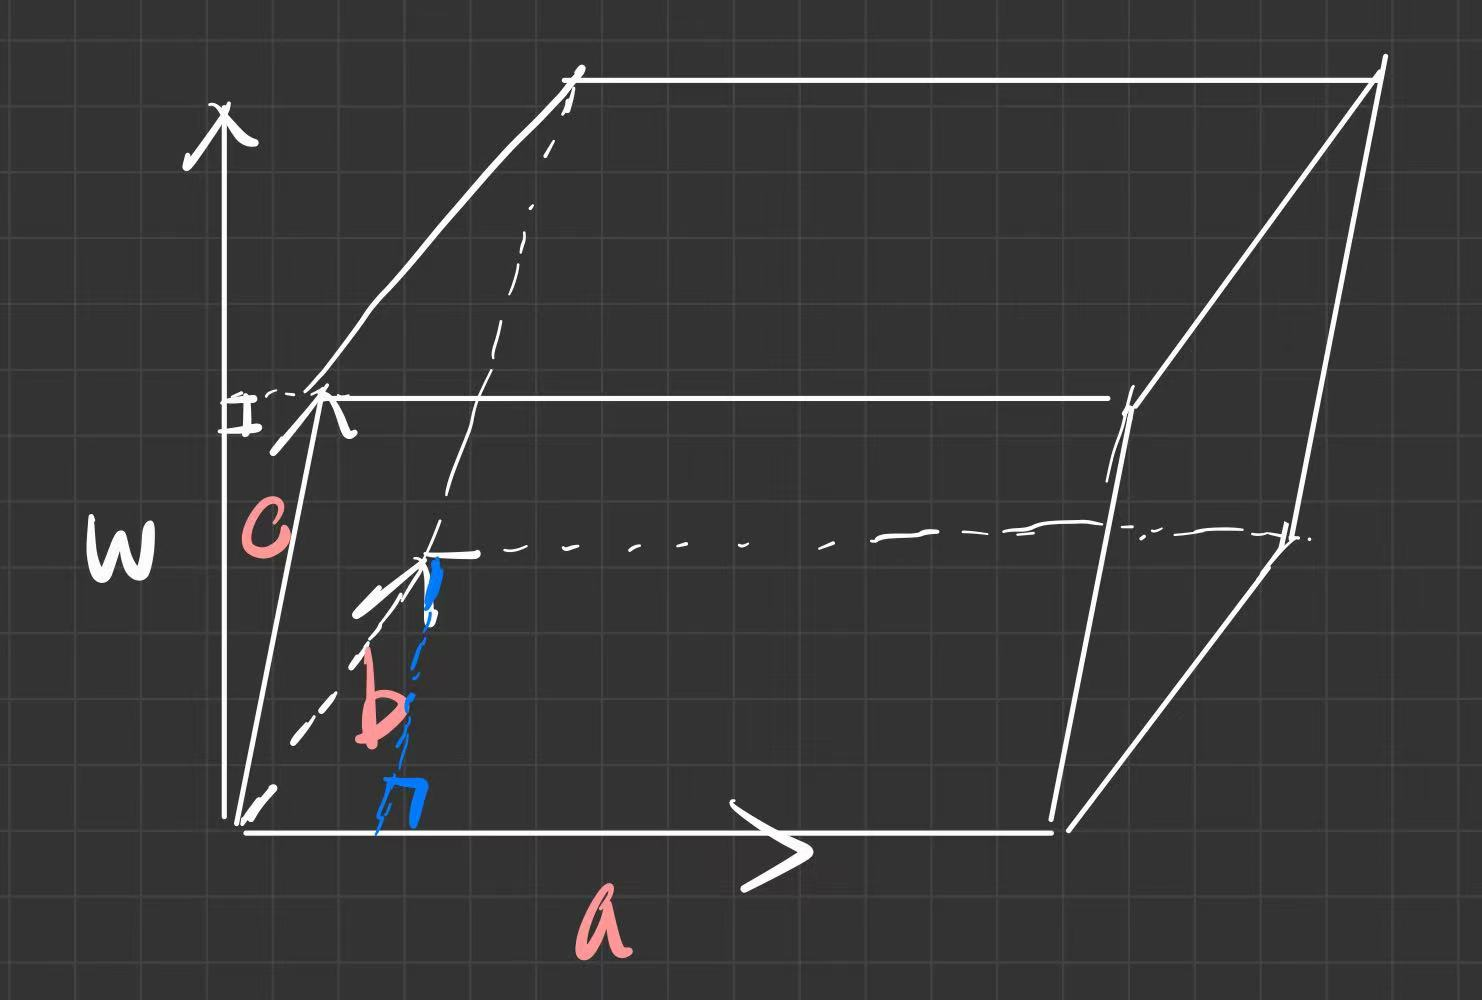 W
c
b
a